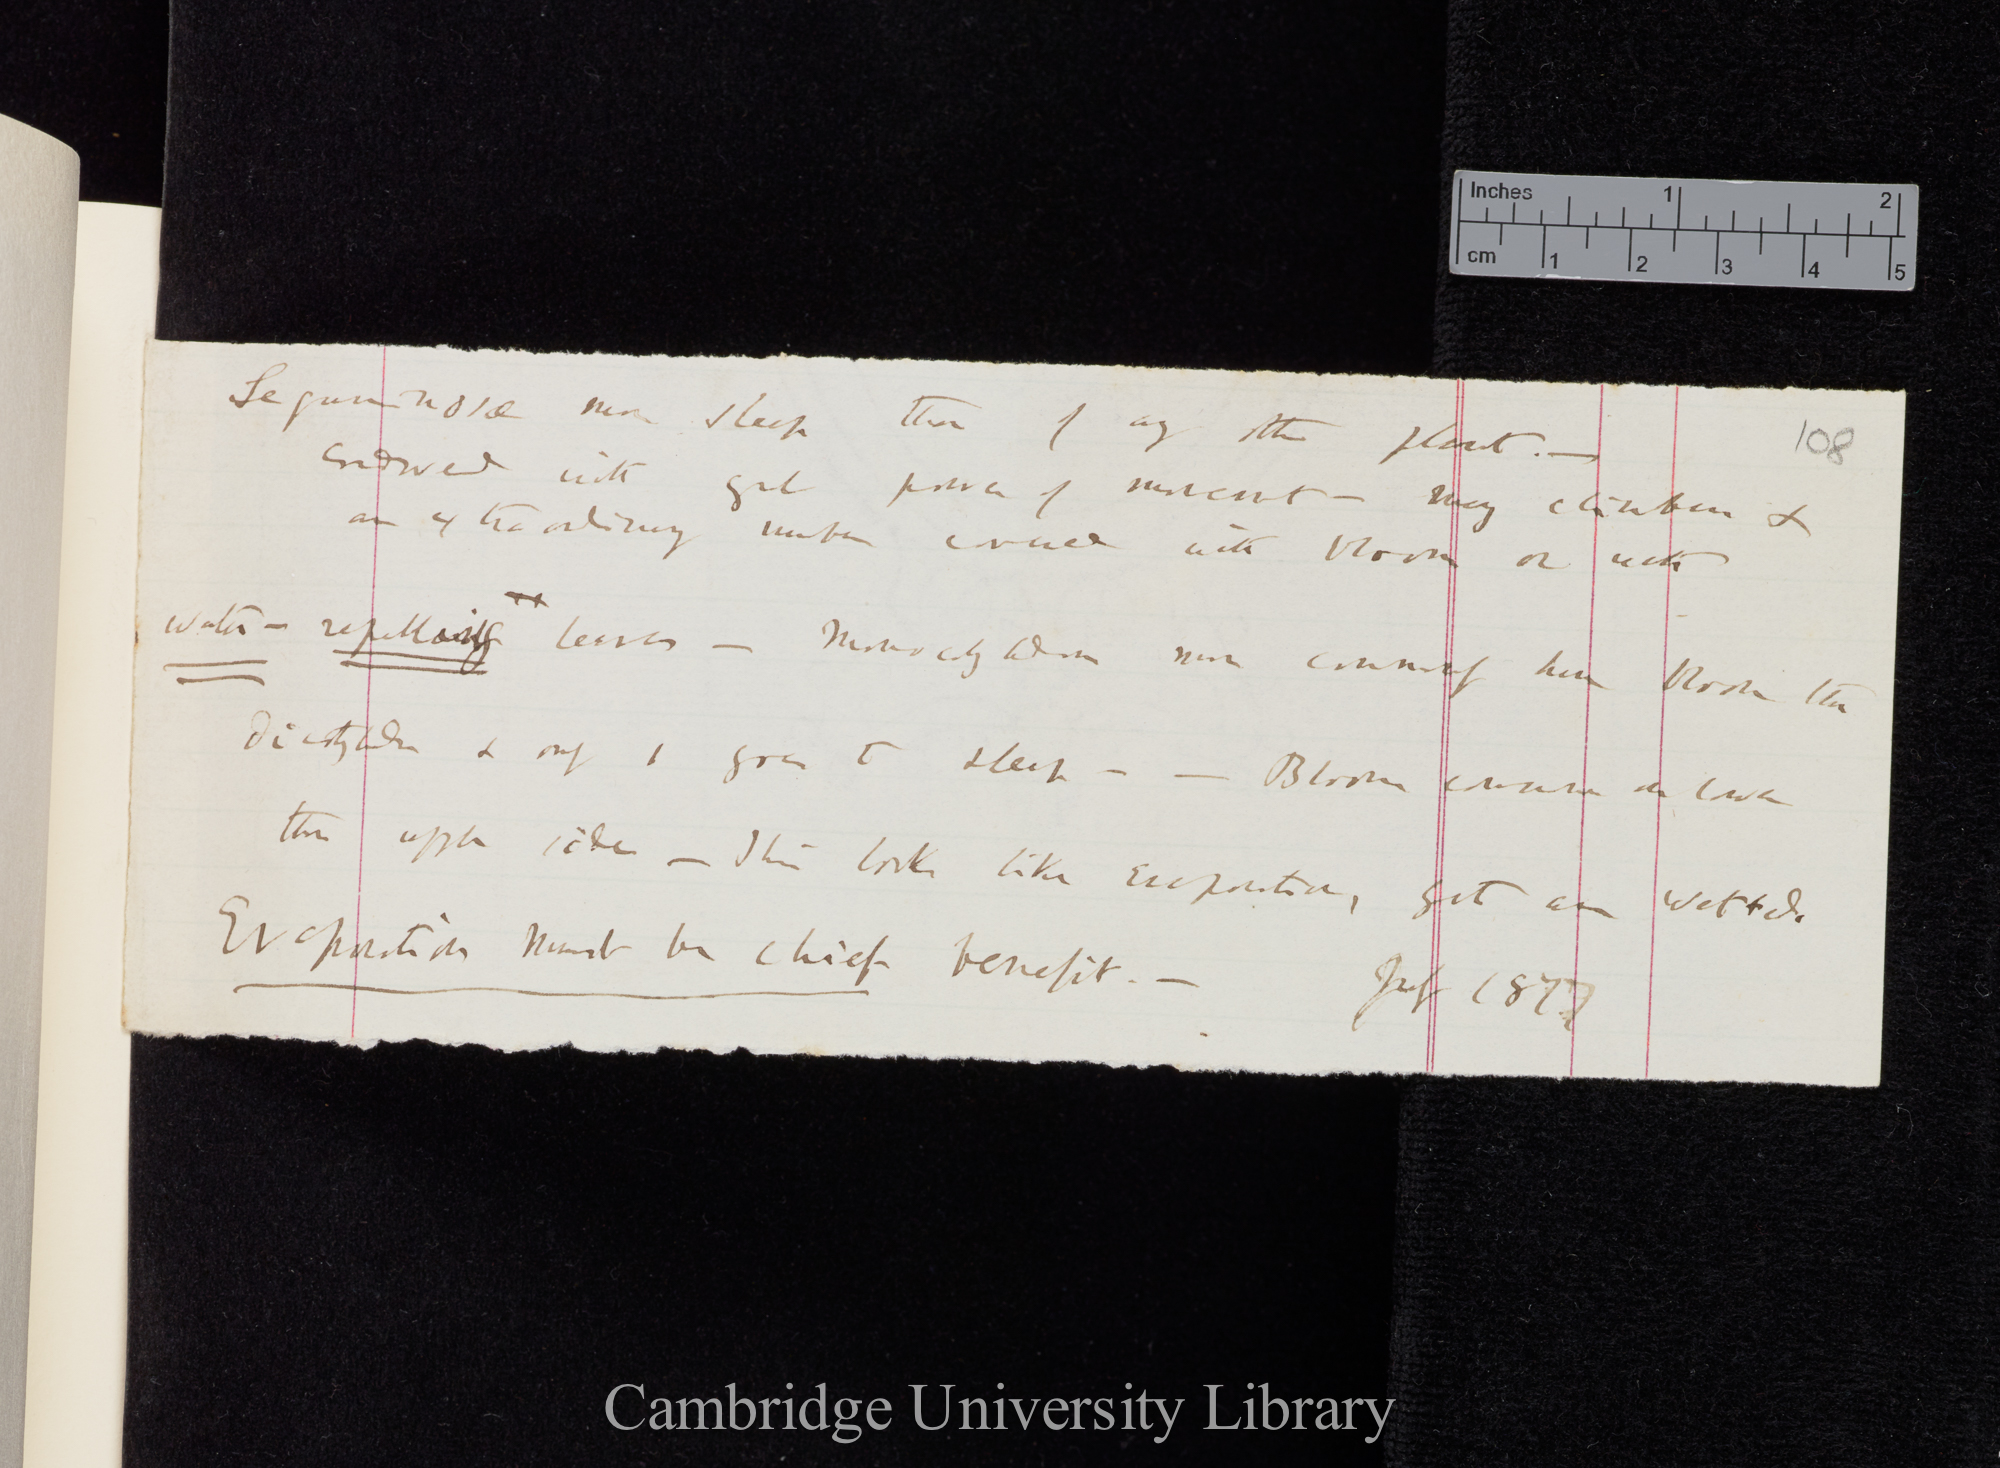 Inches 1 2
cm 1 2 3 4 5
108
Leguminosæ more sleep than of any other plant. —
endowed with great power of movement — many climbers &
an extraordinary number covered with bloom or with
water-repelling leaves — Monocotyledons more commonly have bloom than
Dicotyledons & only 1 goes to sleep — — Bloom commoner on lower
than upper sides — This looks like evaporation, get are wetted.
Evaporation must be chief benefit. — July 1877
Cambridge University Library